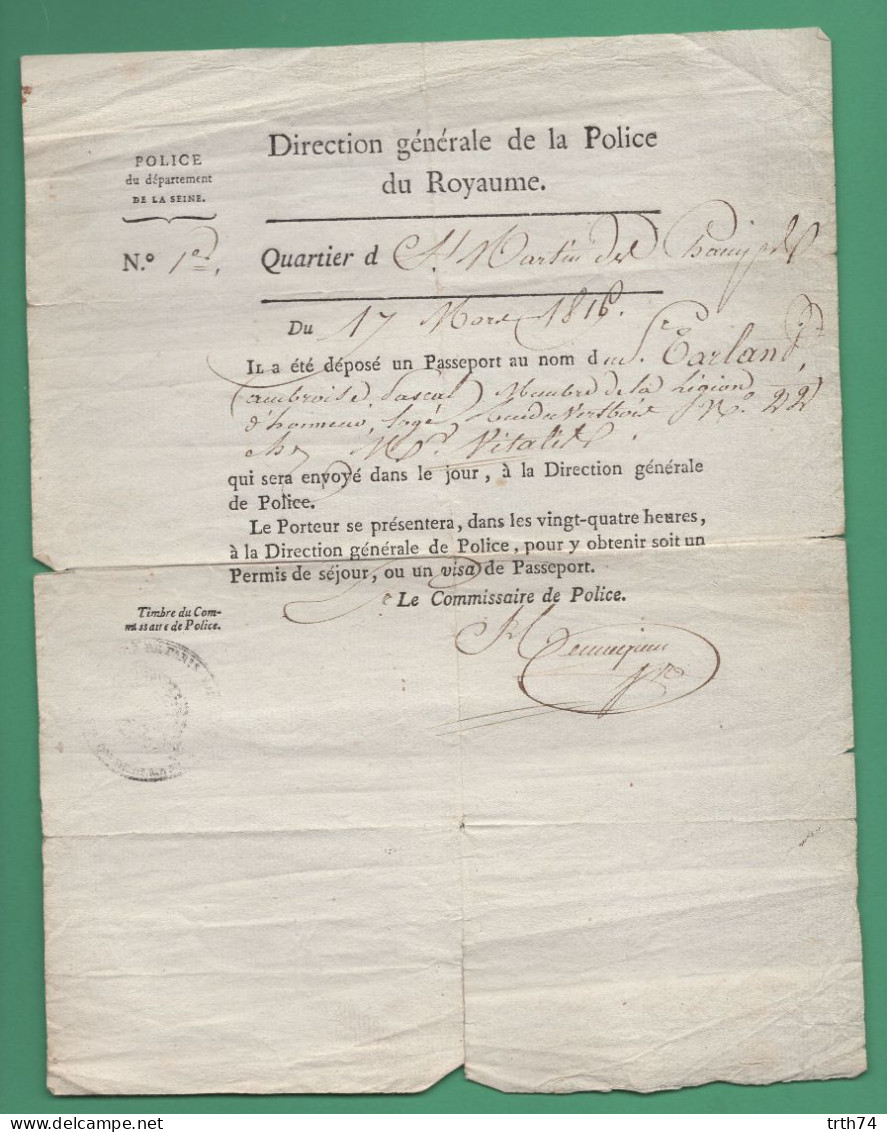 Direction générale de la Police
du Royaume.
POLICE
du département
DE LA SEINE.
N.o
Quartier d St Martin des Champs
Du 17 Mars 1816.
IL a été déposé un Passeport au nom du Sr Tarland,
ambroise Pascal Membre de la Légion
d'honneur, logé rue du Vertbois No 22
chez Mr. Vitalis
qui sera envoyé dans le jour, à la Direction générale
de Police.
Le Porteur se présentera, dans les vingt-quatre heures,
à la Direction générale de Police, pour y obtenir soit un
Permis de séjour, ou un visa de Passeport.
Le Commissaire de Police.
Timbre du Com-
missaire de Police.
trth74